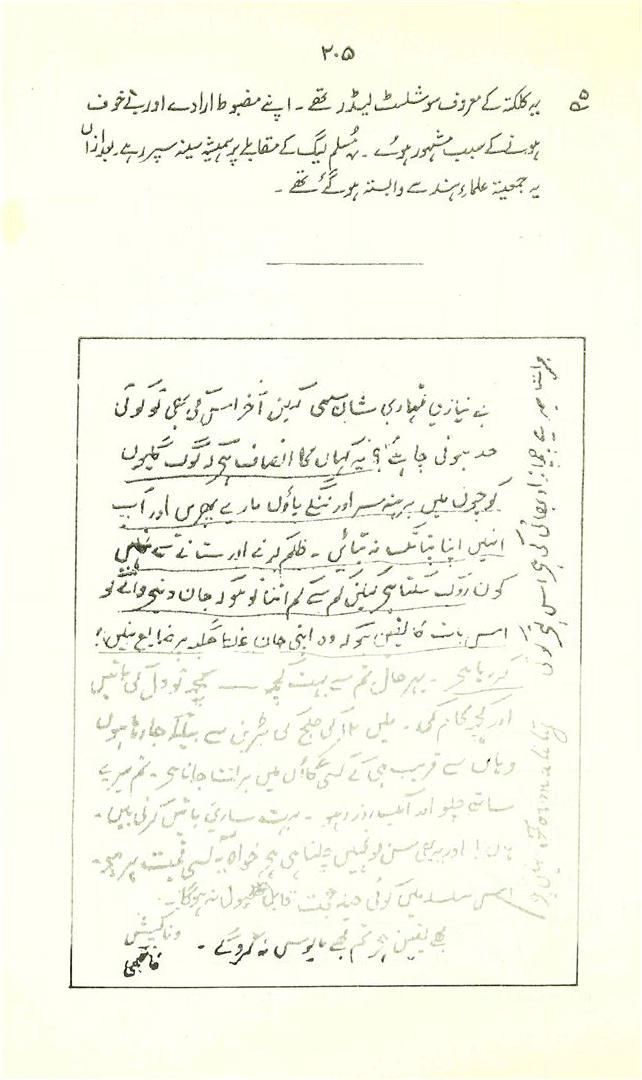 ۲۰۵
۵ یہ کلکتہ کے معروف سوشلسٹ لیڈر تھے۔ اپنے مضبوط ارادے اور بے خوف
ہونے کے سبب مشہور ہوئے۔ مُسلم لیگ کے مقابلے پر ہمیشہ سینہ سپر رہے۔ بعد ازاں
یہ جمعیۃ علماءِ ہند سے وابستہ ہو گئے تھے۔
بے نیازی تمہاری شان سہی لیکن آخر اس کی بھی تو کوئی
حد ہونی چاہئے؟ یہ کہاں کا انصاف ہے کہ لوگ گلیوں
کوچوں میں برہنہ سر اور ننگے پاؤں مارے پھریں اور آپ
انہیں اپنا پتا تک نہ بتائیں۔ ظلم کرنے اور ستانے سے تمہیں
کون روک سکتا ہے لیکن کم سے کم اتنا تو ہو کہ جان دینے والے کو
اس بات کا یقین ہو کہ وہ اپنی جان غلط جگہ پر ضایع نہیں
کر رہا ہے۔ بہر حال تم سے بہت کچھ — کچھ تو دل کی باتیں
اور کچھ کام کی۔ میں کی صبح کی ٹرین سے جا رہا ہوں
وہاں سے قریب ہی کے کسی گاؤں میں برات جانا ہے۔ تم میرے
ساتھ چلو اور۔ بہت ساری باتیں کرنی ہیں۔
ہاں! اور یہ بھی سن لو تمہیں چلنا ہی ہے خواہ کسی قیمت پر ہو۔
اس سلسلہ میں کوئی قابلِ قبول نہ ہوگا۔
مجھے یقین ہے تم مجھے مایوس نہ کرو گے۔
وفا کیش
برات میرے چچازاد بھائی کی ہے اس لئے کوئی
Formality نہیں